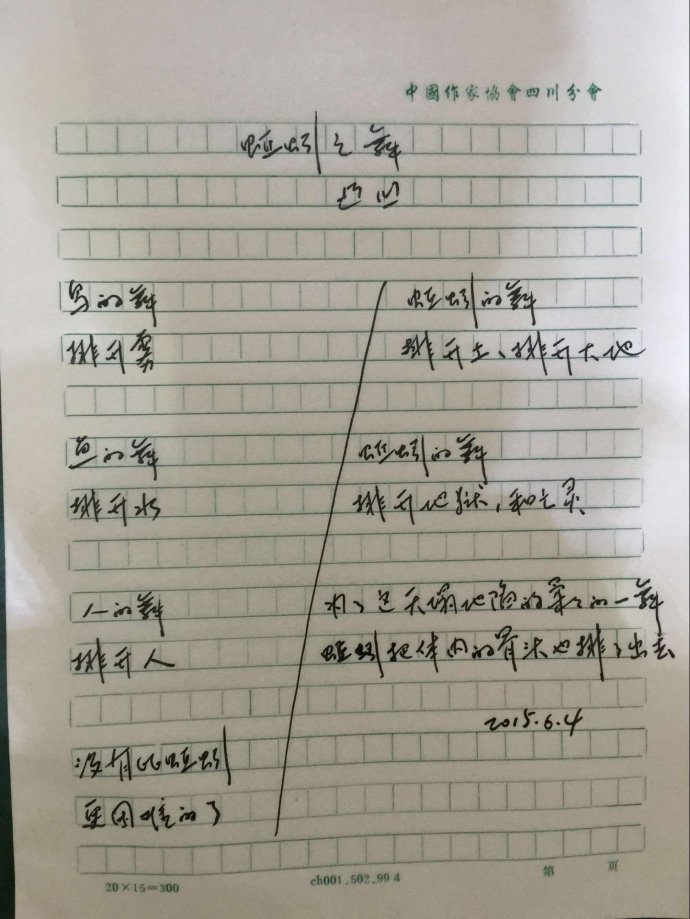 中國作家協會四川分會
蚯蚓之舞
凸凹
鸟的舞
排开雾
鱼的舞
排开水
人的舞
排开人
没有比蚯蚓
更困难的了
蚯蚓的舞
排开土、排开大地
蚯蚓的舞
排开地狱，和亡灵
为了这天塌地陷的柔柔的一舞
蚯蚓把体内的骨头也排了出去
2015.6.4
20×15=300
ch001.502.99 4
第 页